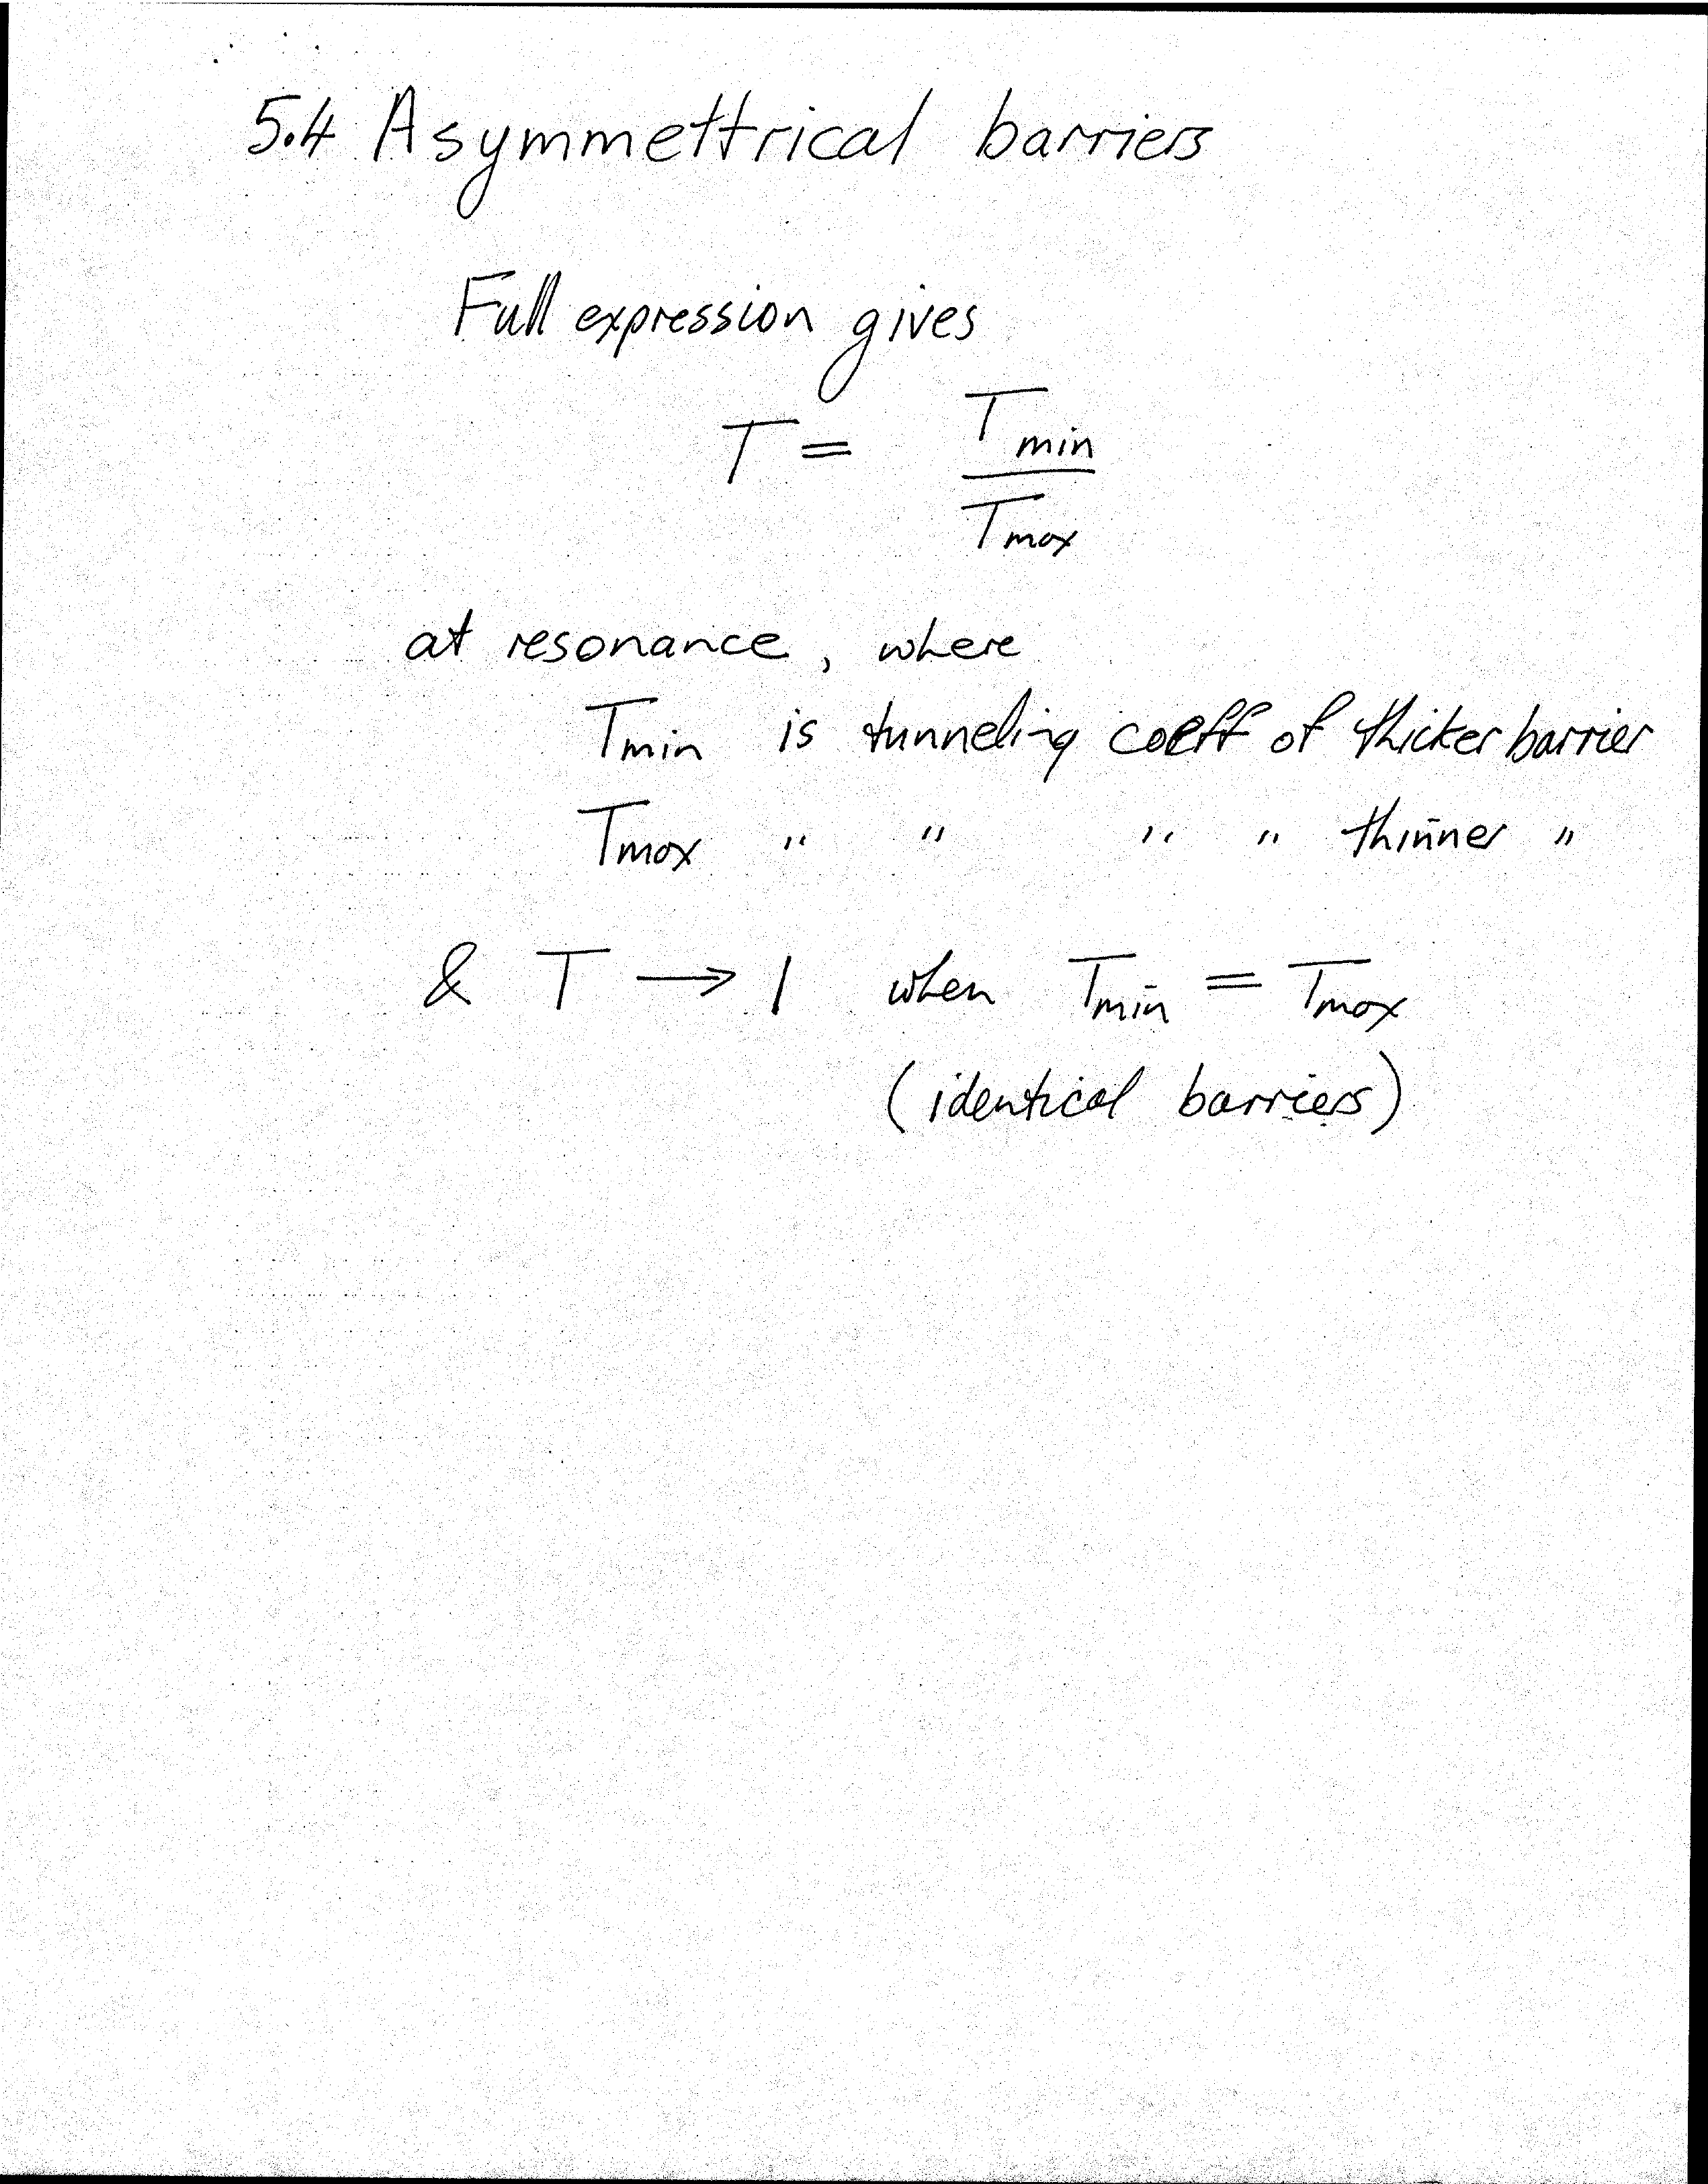 5.4 Asymmettrical barriers
Full expression gives
T = T min / T max
at resonance, where
Tmin is tunneling coeff of thicker barrier
Tmax " " " " thinner "
& T → 1 when Tmin = Tmax
(identical barriers)